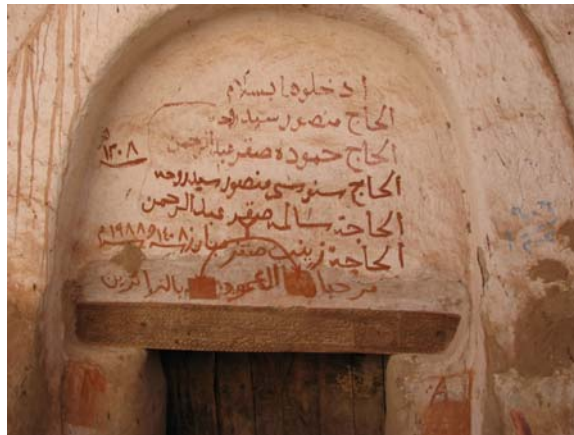 ادخلوها بسلام
الحاج منصور سيد
الحاج حموده صقر عبدالرحمن
١٤٠٨
الحاج سنوسى منصور سيد روحه
الحاجة سالمه صقر عبدالرحمن
الحاجة زينب صقر ١٤٠٨ ١٩٨٨م
مرحبا بالزائرين